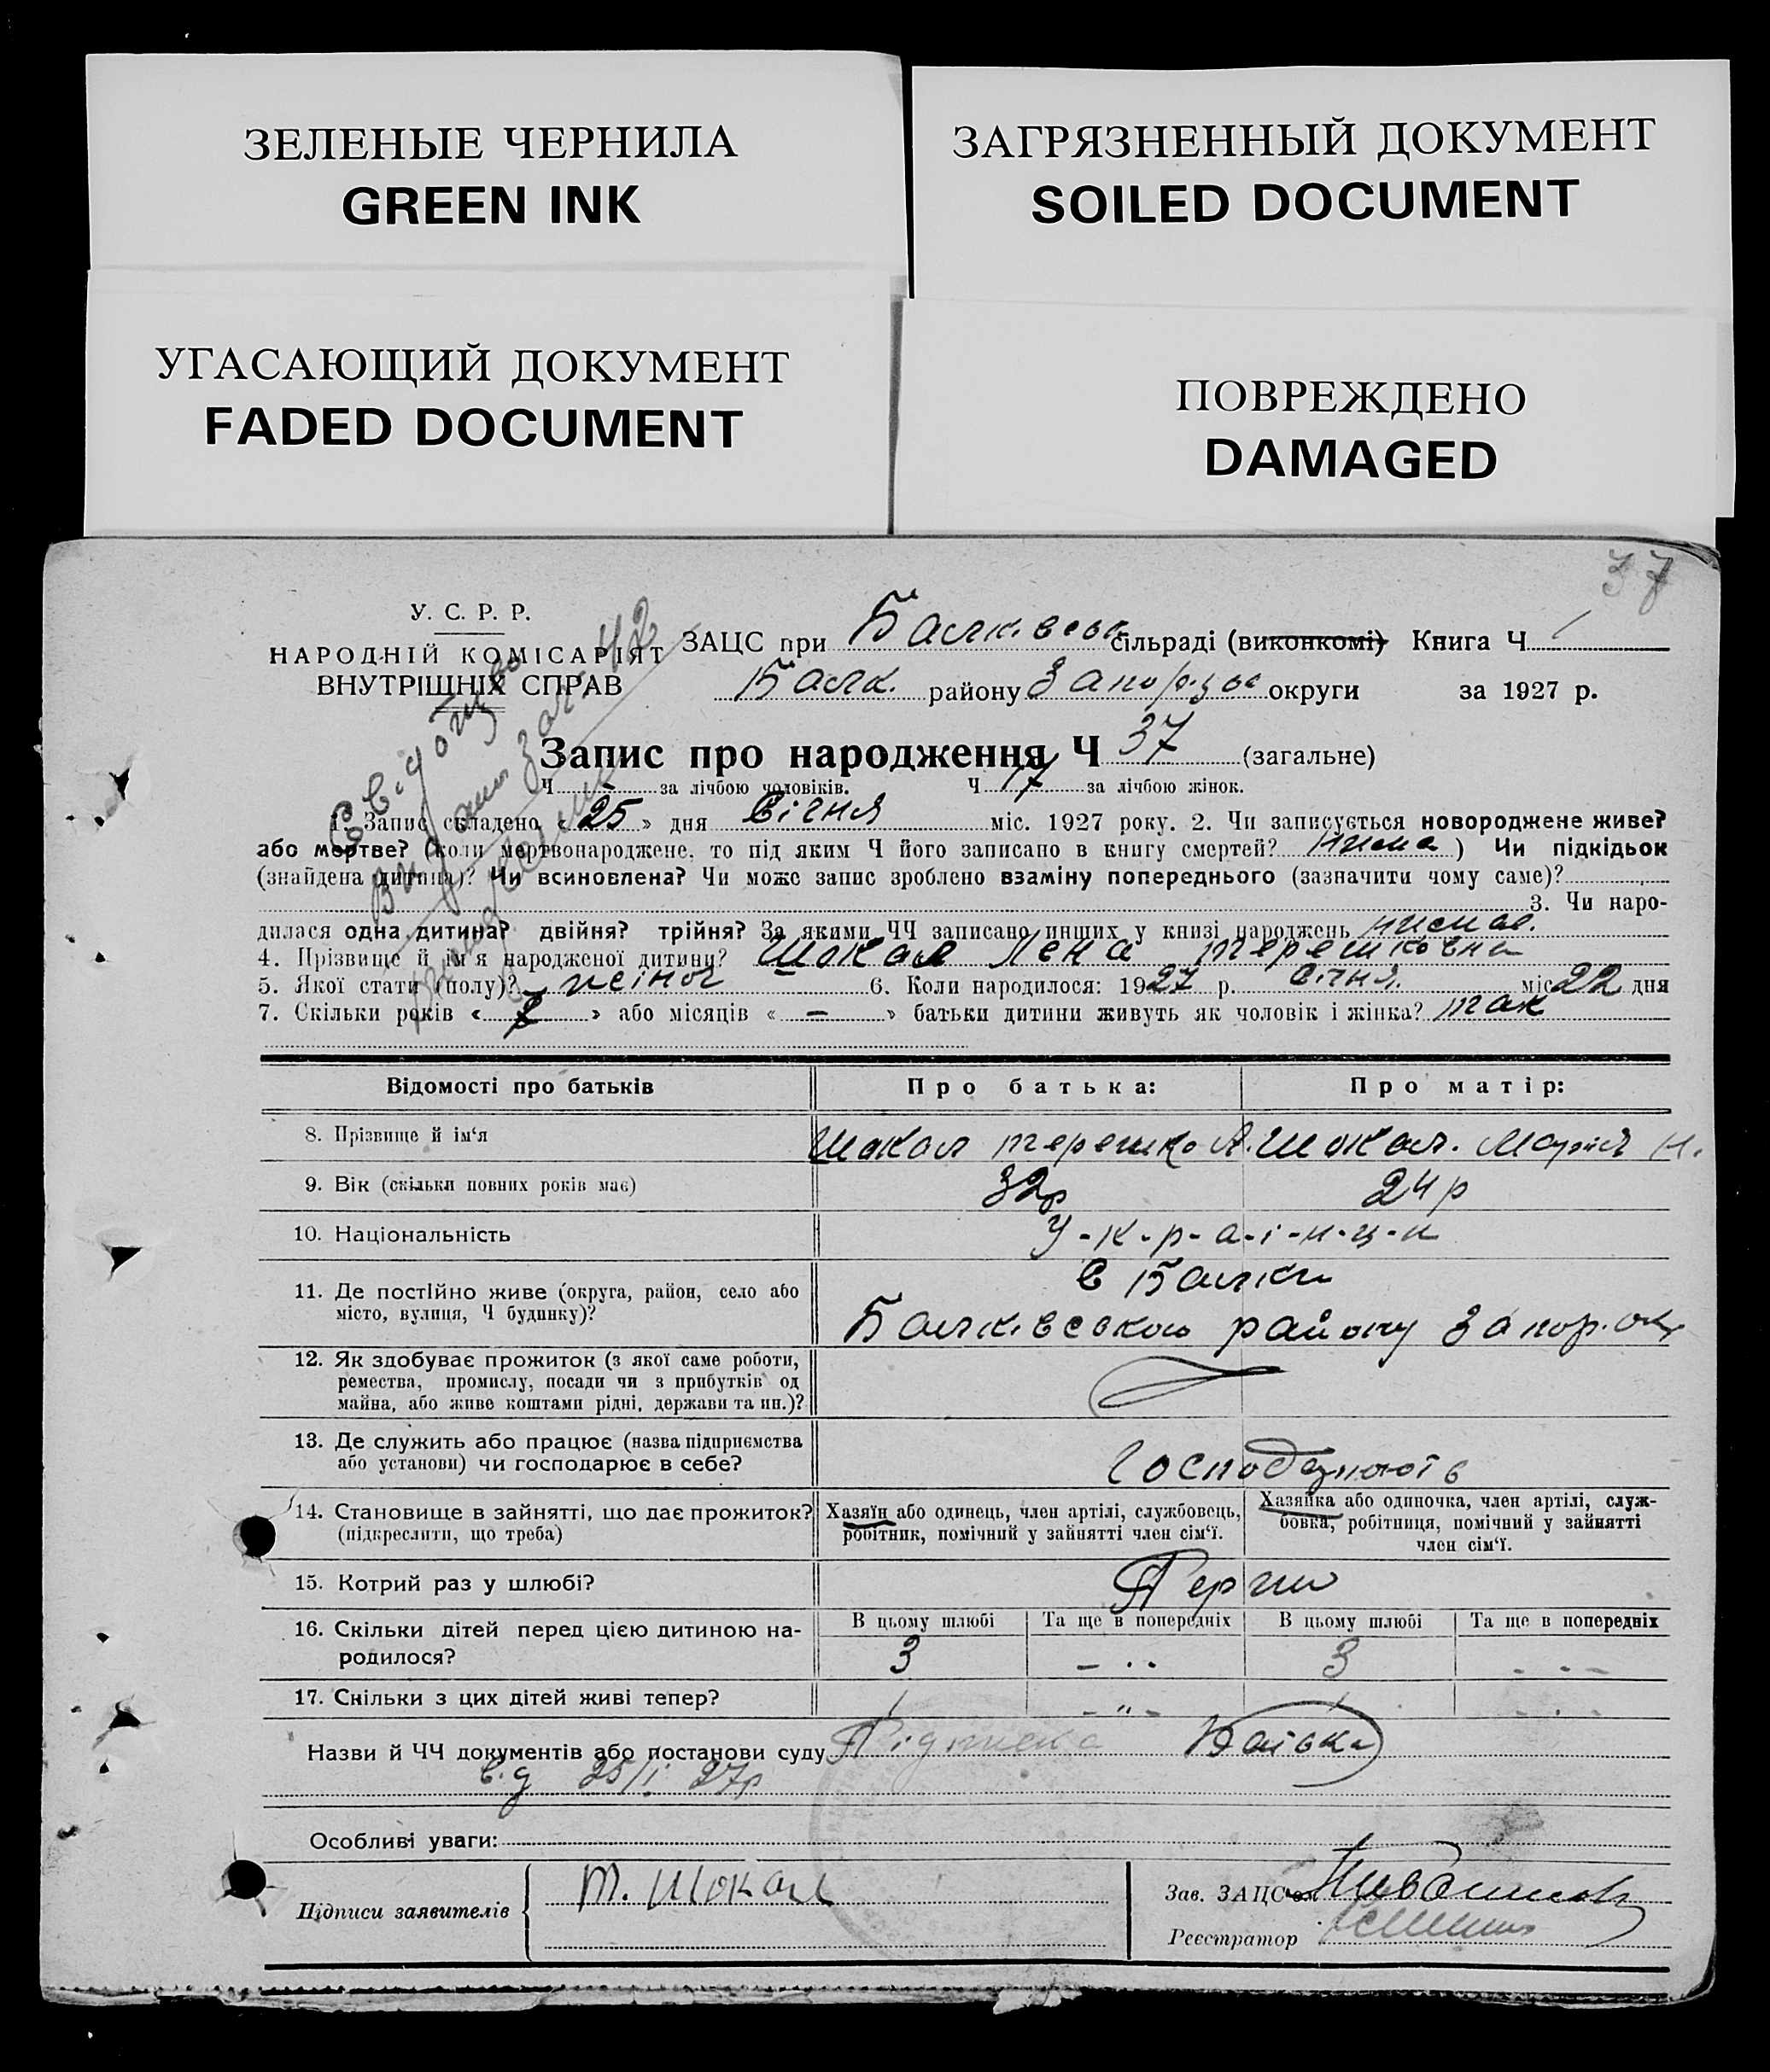 ЗЕЛЕНЫЕ ЧЕРНИЛА
GREEN INK
ЗАГРЯЗНЕННЫЙ ДОКУМЕНТ
SOILED DOCUMENT
УГАСАЮЩИЙ ДОКУМЕНТ
FADED DOCUMENT
ПОВРЕЖДЕНО
DAMAGED
37
У. С. Р. Р.
НАРОДНІЙ КОМІСАРІЯТ
ВНУТРІШНІХ СПРАВ
ЗАЦС при Балківськ сільраді (виконкомі) Книга Ч 1
Балк. району Запорізьк округи за 1927 р.
Запис про народження Ч 37 (загальне)
Ч - за лічбою чоловіків. Ч 17 за лічбою жінок.
1. Запис складено «25» дня Січня міс. 1927 року. 2. Чи записується новороджене живе?
або мертве? (коли мертвонароджене, то під яким Ч його записано в книгу смертей? нема) Чи підкідьок
(знайдена дитина)? Чи всиновлена? Чи може запис зроблено взаміну попереднього (зазначити чому саме)?
3. Чи наро-
дилася одна дитина? двійня? трійня? За якими ЧЧ записано инших у книзі народжень немає.
4. Прізвище й ім'я народженої дитини? Шокал Лена Терешковна
5. Якої стати (полу)? жіноч 6. Коли народилося: 1927 р. січня. міс 22 дня
7. Скільки років « » або місяців « – » батьки дитини живуть як чоловік і жінка? так
Відомості про батьків Про батька: Про матір:
8. Прізвище й ім'я Шокал Терешко А. Шокал. Марія Н.
9. Вік (скільки повних років має) 32р 24р
10. Національність У-к-р-а-ї-н-ц-и
11. Де постійно живе (округа, район, село або місто, вулиця, Ч будинку)? с Балки
Балківського району Запор. окр
12. Як здобуває прожиток (з якої саме роботи,
ремества, промислу, посади чи з прибутків од
майна, або живе коштами рідні, держави та ин.)?
13. Де служить або працює (назва підприємства
або установи) чи господарює в себе? Господарюють
14. Становище в зайнятті, що дає прожиток?
(підкреслити, що треба)
Хазяїн або одинець, член артілі, службовець,
робітник, помічний у зайнятті член сім'ї.
Хазяйка або одиночка, член артілі, служ-
бовка, робітниця, помічний у зайнятті
член сім'ї.
15. Котрий раз у шлюбі? Перши
16. Скільки дітей перед цією дитиною на-
родилося?
В цьому шлюбі Та ще в попередніх В цьому шлюбі Та ще в попередніх
3 3
17. Скільки з цих дітей живі тепер? 1 1
Назви й ЧЧ документів або постанови суду Підписка
25/I 27р
Особливі уваги:
Підписи заявителів Т. Шокал
Зав. ЗАЦС'ом
Реєстратор